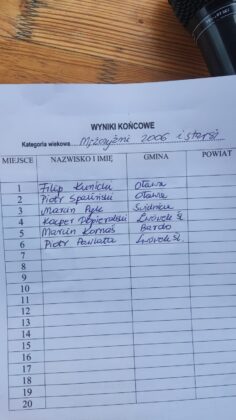 WYNIKI KOŃCOWE
Kategoria wiekowa Mężczyźni 2006 i starsi
MIEJSCE NAZWISKO I IMIĘ GMINA POWIAT
1 Filip Kunicki Oława
2 Piotr Spaliński Oława
3 Marcin Świdnica
4 Kacper Lwówek Śl.
5 Marcin Kornaś Bardo
6 Piotr Powiatka Lwówek Śl.
7
8
9
10
11
12
13
14
15
16
17
18
19
20